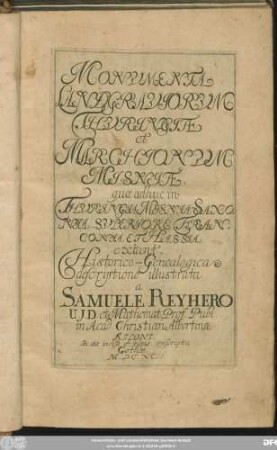 MONUMENTA
LANDGRAVIORUM
THURINGIÆ
et
MARCHIONUM
MISNIÆ,
quæ adhuc in
THURINGIA, MISNIA, SAXO
NIA SUPERIORE, FRAN
CONIA ET HASSIA
extant,
Historica-Genealogica
descriptione illustrata
a
SAMUELE REYHERO
U J D et Mathemat. Prof. Publ.
in Acad. Christian Albertina
KILONI.
Gothæ